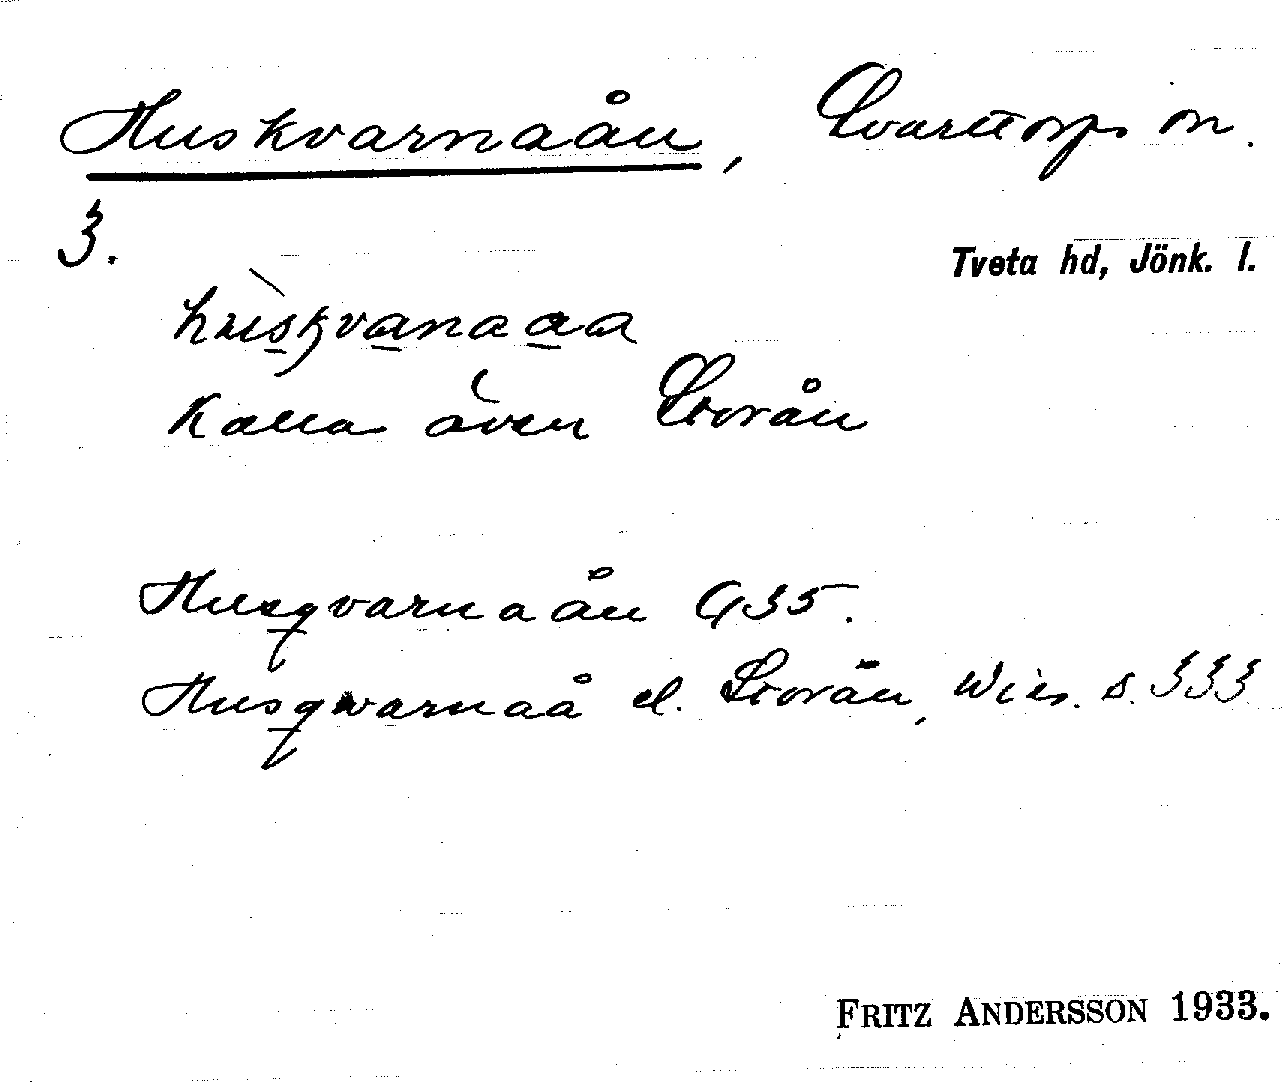 Huskvarnaån, Svarttorps sn.
3.
Tveta hd, Jönk. l.
hùskvanaaa
Kallas även Storån
Husqvarnaån G35.
Husqwarnaå el. Storån, Wies. s. 333
FRITZ ANDERSSON 1933.